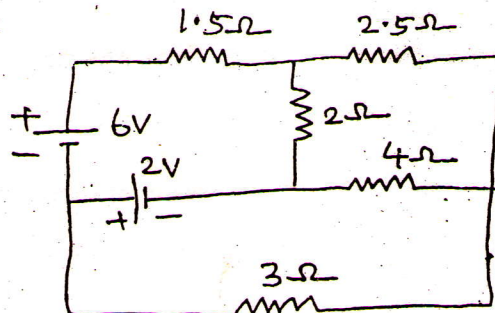 1.5Ω 2.5Ω
+ 6V 2Ω
−
2V 4Ω
+ −
3Ω